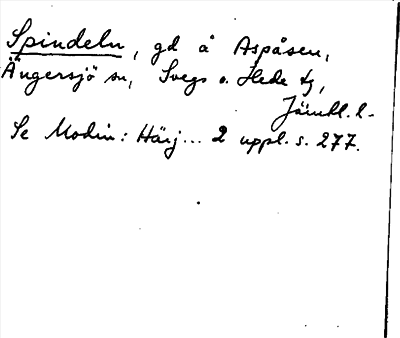 Spindeln, gd å Aspåsen,
Ängersjö sn, Svegs o. Hede tg,
Jämtl. l.
Se Modin: Härj... 2 uppl. s. 277.